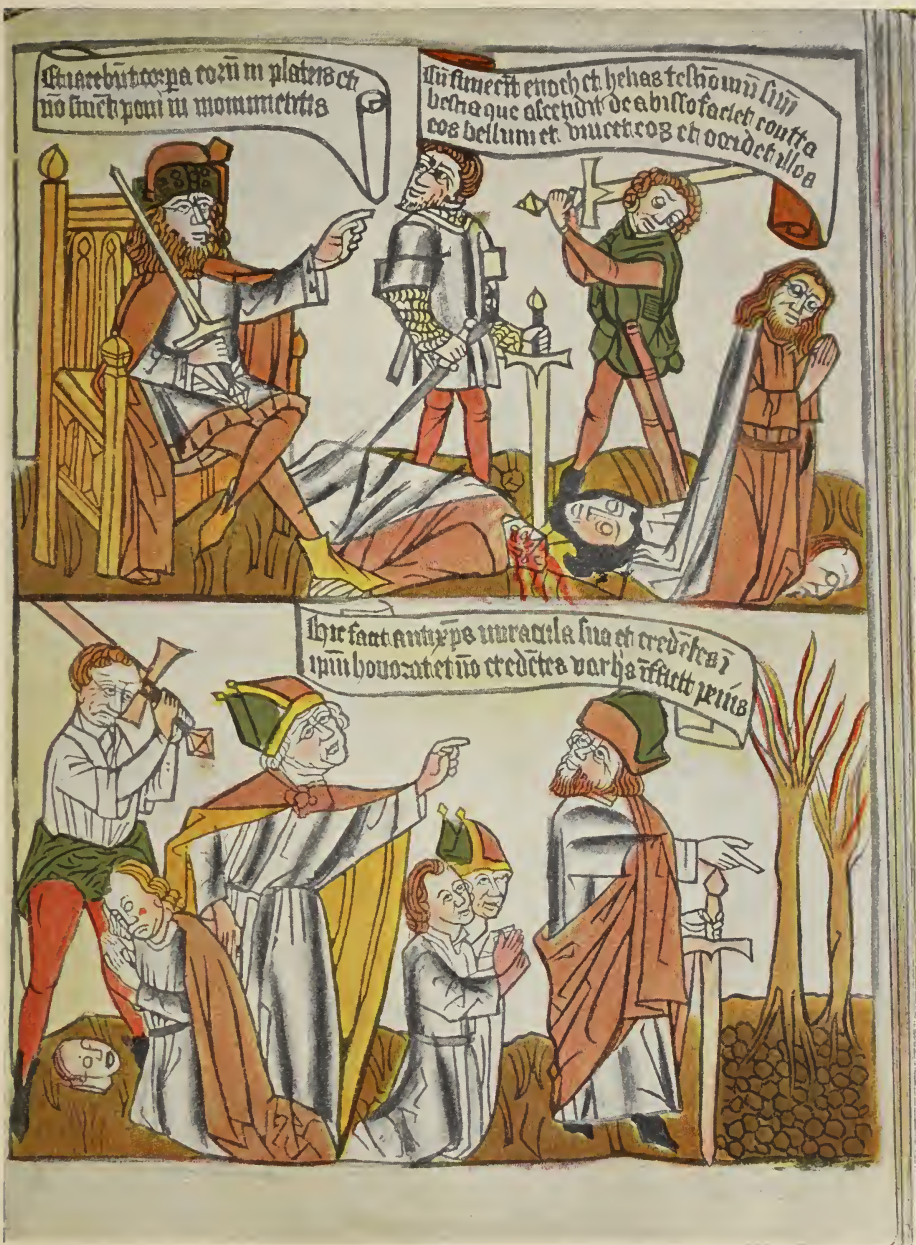 Et iacebūt corpa eorū in plateis et
nō sinēt poni in monumentis
Cū finierīt enoch et helias testiōniū suū
bestia que ascendit de abisso faciet contra
eos bellum et vincet eos et occidet illos
Hic facit antixp̄s miracula sua et credētes ī
ipm̄ honorat et nō credētes varijs īficit penis